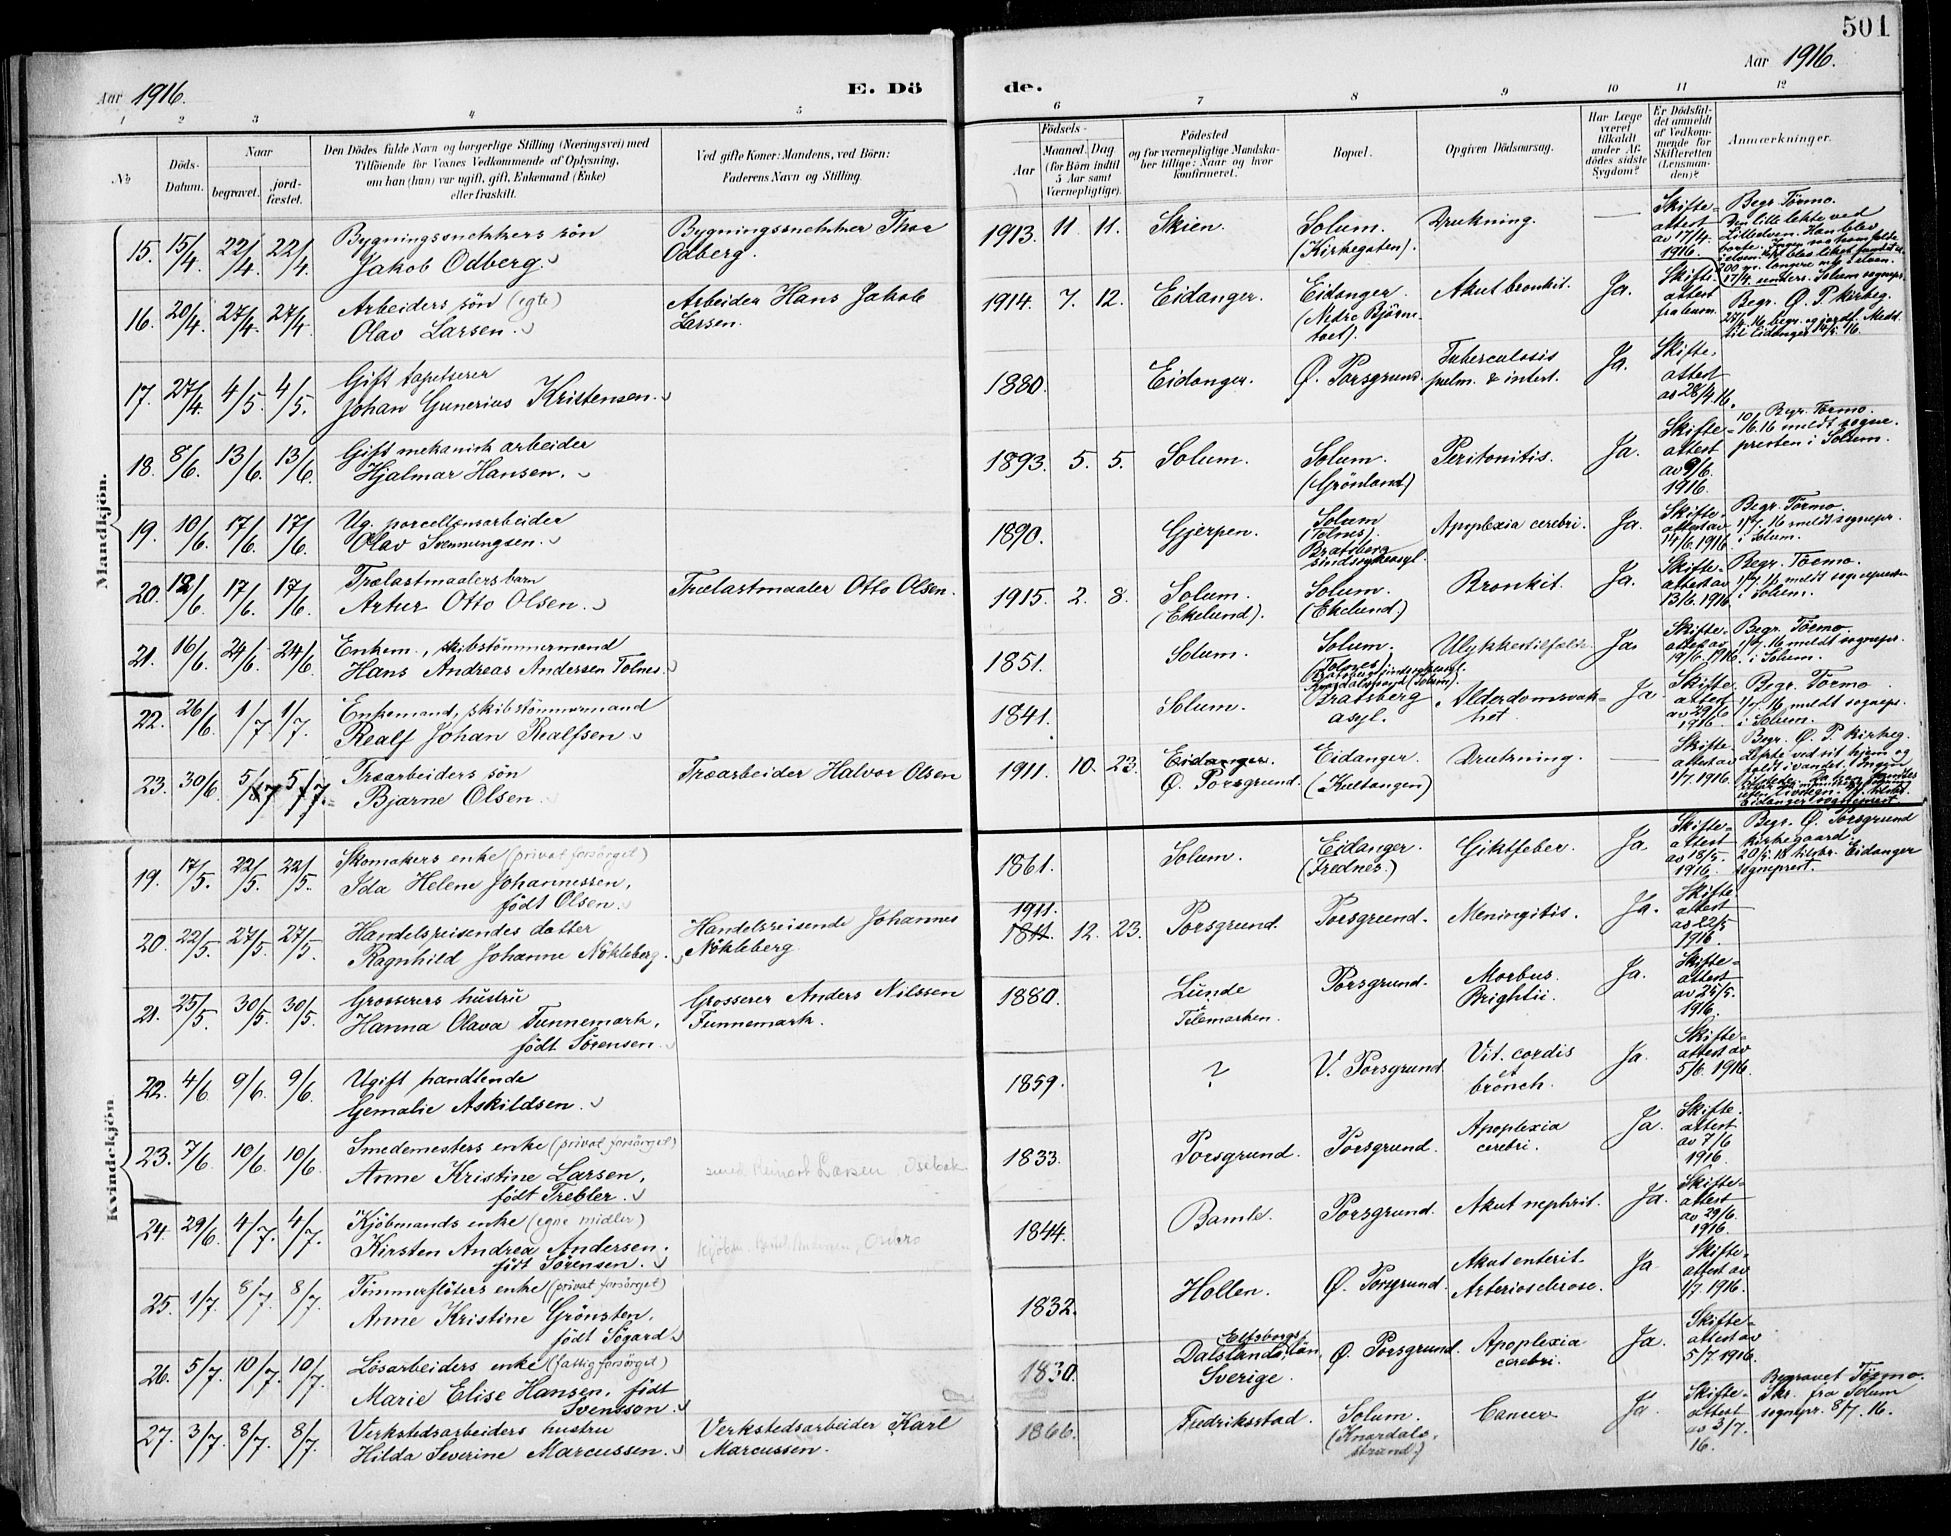 501
Aar 1916.
E. Dö
de.
Aar 1916.
1 2 3 4 5 6 7 8 9 10 11 12
№
Döds-Datum.
Naar
begravet.
jordfæstet.
Den Dödes fulde Navn og borgerlige Stilling (Næringsvei) med
Tilföiende for Voxnes Vedkommende af Oplysning,
om han (hun) var ugift, gift, Enkemand (Enke)
eller fraskilt.
Ved gifte Koner: Mandens, ved Börn:
Faderens Navn og Stilling.
Födsels-
Aar
Maaned. Dag.
(for Börn indtil
5 Aar samt
Værnepligtige).
Födested
og for værnepligtige Mandska-
ber tillige: Naar og hvor
konfirmeret.
Bopæl.
Opgiven Dödsaarsag.
Har Læge
været
tilkaldt
under Af-
dödes sidste
Sygdom?
Er Dödsfal-
det anmeldt
af Vedkom-
mende for
Skifteretten
(Lensman-
den)?
Anmærkninger.
Mandkjön.
15. 15/4. 22/4. 22/4. Bygningssnekkers sön
Jakob Odberg.
Bygningssnekker Thor
Odberg.
1913. 11. 11. Skien. Solum.
(Kirkegaten).
Drukning. —
Skifte-
attest
av 17/4.
1916.
Begr. Törmo.
Den lille lekte ved
Lilleelven. Han blev
borte.
17/4.
16. 20/4. 27/4. 27/4. Arbeiders sön (egte)
Olav Larsen.
Arbeider Hans Jakob
Larsen.
1914. 7. 12. Eidanger. Eidanger.
(Nedre Björn-
tvet).
Akut bronkit. Ja.
Skifte-
attest
Begr. Ø. P. kirkeg.
17. 27/4. 4/5. 4/5. Gift tapetserer
Johan Gunerius Kristensen.
1880. Eidanger. Ø. Porsgrund. Tuberculosis
pulm. & intest. Ja.
Skifte-
attest
av 28/4.16.
18. 8/6. 13/6. 13/6. Gift mekanisk arbeider
Hjalmar Hansen.
1893. 5. 5. Solum. Solum.
(Grönland)
Peritonitis. Ja.
Skifte-
attest
av 9/6.
1916.
Begr. Törmo.
10/6.16 meldt sogne-
presten i Solum.
19. 10/6. 17/6. 17/6. Ug. porcellænsarbeider
Olav Svenningsen.
1890. Gjerpen. Solum
(Tolnes).
Bratsberg
sindssykeasyl.
Apoplexia cerebri. Ja.
Skifte-
attest av
14/6.1916.
Begr. Törmo.
1/7.16 meldt sognepr.
i Solum.
20. 12/6. 17/6. 17/6. Trælastmaalers barn
Artur Otto Olsen.
Trælastmaaler Otto Olsen.
1915. 2. 8. Solum.
(Ekelund).
Solum.
(Ekelund.)
Bronkit. Ja.
Skifte-
attest av
13/6.1916.
Begr. Törmo.
1/7.16 meldt sognepresten
i Solum.
21. 16/6. 24/6. 24/6. Enkem., skibstömmermand
Hans Andreas Anderssen Tolnes.
1851. Solum. Solum.
(Tolnes)
Ulykkestilfælde. Ja.
Skifte-
attest av
19/6.1916.
Begr. Törmo.
1/7.16 meldt sognepr.
i Solum.
22. 26/6. 1/7. 1/7. Enkemand, skibstömmermand
Realf Johan Realfsen.
1841. Solum. Bratsberg
asyl.
Alderdomsvak-
het. Ja.
Skifte-
attest
av 29/6
1916.
Begr. Törmo
1/7.16 meldt sognepr.
i Solum.
23. 30/6. 5/7. 5/7. Træarbeiders sön
Bjarne Olsen.
Træarbeider Halvor Olsen
1911. 10. 23. Eidanger.
Ø. Porsgrund. Eidanger.
(Kultangen)
Drukning. —
Skifte-
attest av
1/7.1916.
Begr. Ø. P. kirkeg.
Lekte ved sit hjem og
faldt i vandet. Ingen
Eidanger sogneprest.
Kvindekjön
19. 17/5. 22/5. 22/5. Skomakers enke (privat forsörget)
Ida Helene Johannessen,
födt Olsen.
1861. Solum. Eidanger.
(Frednes.)
Giktfeber. Ja.
Skifte-
attest
av 18/5.
1916.
Begr. Ø. Porsgrund
kirkegaard.
Eidanger
sogneprest.
20. 22/5. 27/5. 27/5. Handelsreisendes datter
Ragnhild Johanne Nökleberg.
Handelsreisende Johannes
Nökleberg.
1911.
1811. 12. 23. Porsgrund. Porsgrund. Meningitis. Ja.
Skifte
attest
av 22/5
1916.
21. 25/5. 30/5. 30/5. Grosserers hustru
Hanna Olava Funnemark,
födt Sörensen.
Grosserer Anders Nilssen
Funnemark.
1880. Lunde
i
Telemarken.
Porsgrund. Morbus.
Brightii. Ja.
Skifte-
attest
av 25/5.
1916.
22. 4/6. 9/6. 9/6. Ugift handlende
Gemalie Askildsen.
1859. ? V. Porsgrund. Vit. cordis
et
bronch. Ja.
Skifte-
attest av
5/6. 1916.
23. 7/6. 10/6. 10/6. Smedemesters enke (privat forsörget)
Anne Kristine Larsen,
födt Trebler.
smed Reinert Larsen, Osebak.
1833. Porsgrund. Porsgrund. Apoplexia
cerebri. Ja.
Skifte-
attest
av 7/6
1916.
24. 29/6. 4/7. 4/7. Kjöbmands enke (egne midler)
Kirsten Andrea Andersen.
födt Sörensen.
1844. Bamle. Porsgrund. Akut nephrit. Ja.
Skifte-
attest
av 29/6.
1916.
25. 1/7. 8/7. 8/7. Timmerflöters enke (privat forsörget)
Anne Kristine Grönsten,
födt Sögard.
1832. Hollen. Ø. Porsgrund. Akut enterit.
Arteriosclerose. Ja.
Skifte-
attest av
1/7. 1916.
26. 5/7. 10/7. 10/7. Lösarbeiders enke (fattigforsörget)
Marie Elise Hansen, födt
Svensson.
1830. Elfsborgs
Dalsland, län,
Sverige.
Ø. Porsgrund. Apoplexia
cerebri. Ja.
Skifte-
attest av
5/7. 1916.
27. 3/7. 8/7. 8/7. Verkstedsarbeiders hustru
Hilda Severine Marcussen.
Verkstedsarbeider Karl
Marcussen.
1866. Fredrikstad. Solum.
(Knardals-
strand.)
Cancer. Ja.
Skifte-
attest
av 3/7.
16.
Begravet Törmo.
Skr. fra Solum
sognepr. 8/7. 16.